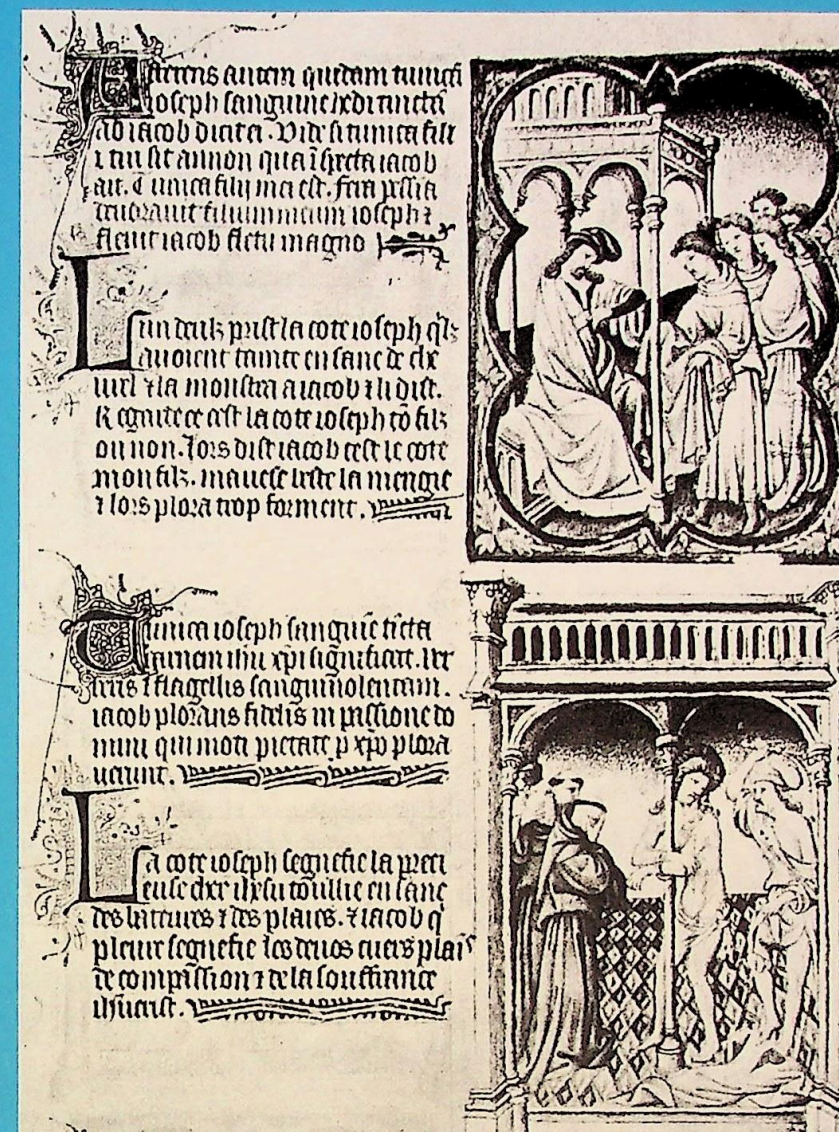 autem quidam tunicā
ioseph sanguine hedi tinctā
ad iacob dicit ei. Vide si tunica filii
tui sit an non quā īspecta iacob
ait. Tunica filij mei est. fera pessīa
deuorauit filium meum ioseph ⁊
fleuit iacob fletu magno
Lun deulz prist la cote ioseph qͥlz
auoient tainte en sanc de che
urel ⁊ la monstra a iacob ⁊ li dist.
Regarde ce cest la cote ioseph tō filz
ou non. Lors dist iacob cest le cote
mon filz. mauese beste la mengie
⁊ lors plora trop forment.
Tunica ioseph sanguīe tīcta
carnem ihu xpi significat.
⁊ flagellis sanguinolentam.
iacob plorans fidelis in passione do
mini qui moti pietate p xpo plora
uerunt.
La cote ioseph segnefie la preci
euse cher ihesu touillie en sanc
des bateures ⁊ des plaies. ⁊ iacob q
pleure segnefie les deuos cuers plaīs
de compassion ⁊ de la souffrance
ihucrist.